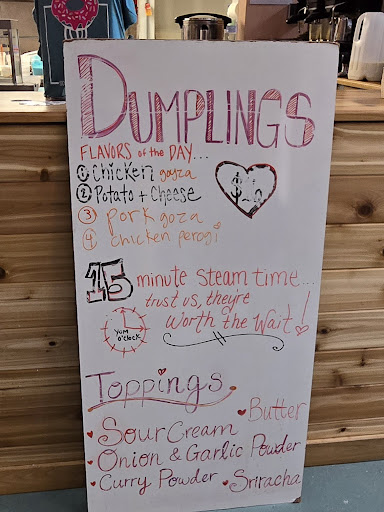 DUMPLINGS
FLAVORS of the DAY...
1 Chicken goyza
2 Potato + Cheese
3 pork goza
4 chicken perogi
15 minute steam time...
trust us, they're
worth the wait!
YUM
o'clock
Toppings
Butter
Sour Cream
Onion & Garlic Powder
Curry Powder • Sriracha